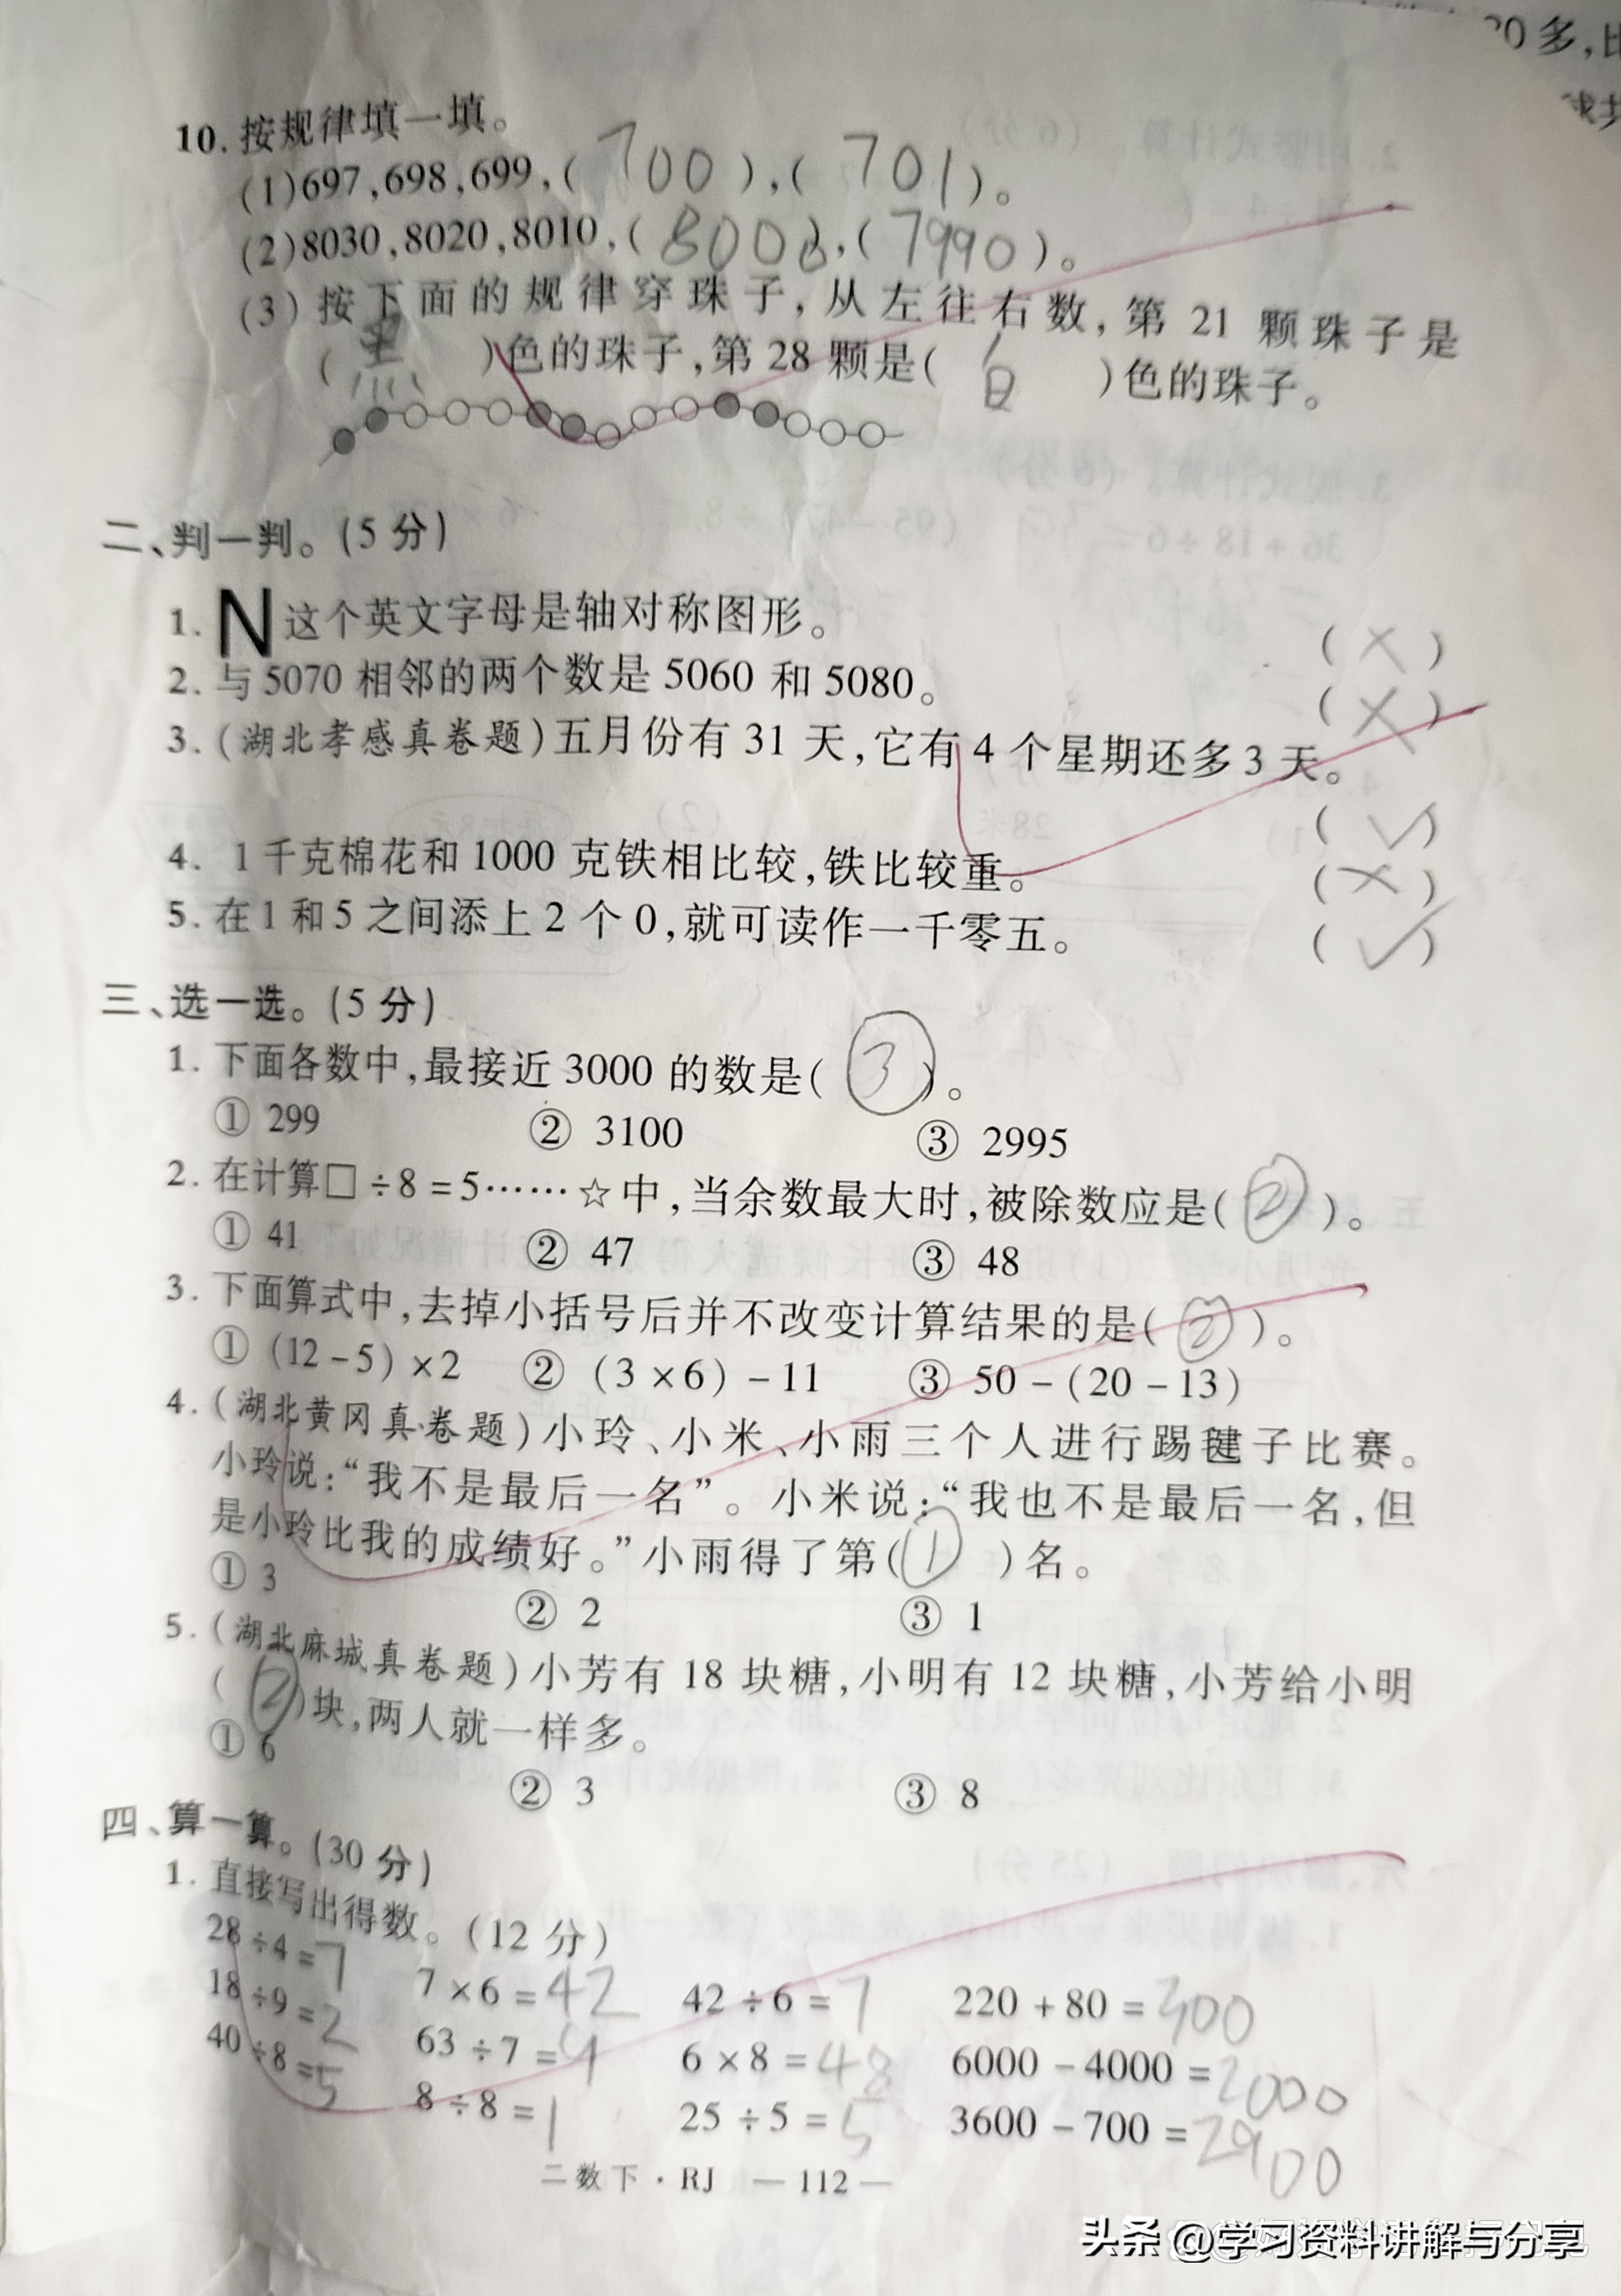 20多,比
10.按规律填一填。
(1)697,698,699,( 700 ),( 701 )。
(2)8030,8020,8010,( 8000 ),( 7990 )。
(3)按下面的规律穿珠子,从左往右数,第 21 颗珠子是
( 黑 )色的珠子,第 28 颗是( 白 )色的珠子。
二、判一判。(5 分)
1. N 这个英文字母是轴对称图形。 ( × )
2. 与 5070 相邻的两个数是 5060 和 5080。 ( × )
3. (湖北孝感真卷题)五月份有 31 天,它有 4 个星期还多 3 天。
( ✓ )
4. 1 千克棉花和 1000 克铁相比较,铁比较重。 ( × )
5. 在 1 和 5 之间添上 2 个 0,就可读作一千零五。 ( ✓ )
三、选一选。(5 分)
1. 下面各数中,最接近 3000 的数是( ③ )。
① 299 ② 3100 ③ 2995
2. 在计算□÷8=5……☆中,当余数最大时,被除数应是( ② )。
① 41 ② 47 ③ 48
3. 下面算式中,去掉小括号后并不改变计算结果的是( ② )。
① (12-5)×2 ② (3×6)-11 ③ 50-(20-13)
4. (湖北黄冈真卷题)小玲、小米、小雨三个人进行踢毽子比赛。
小玲说:“我不是最后一名”。小米说:“我也不是最后一名,但
是小玲比我的成绩好。”小雨得了第( ① )名。
① 3 ② 2 ③ 1
5. (湖北麻城真卷题)小芳有 18 块糖,小明有 12 块糖,小芳给小明
( ② )块,两人就一样多。
① 6 ② 3 ③ 8
四、算一算。(30 分)
1. 直接写出得数。(12 分)
28÷4=7 7×6=42 42÷6=7 220+80=300
18÷9=2 63÷7=9 6×8=48 6000-4000=2000
40÷8=5 8÷8=1 25÷5=5 3600-700=2900
二数下·RJ —112—
头条 @学习资料讲解与分享